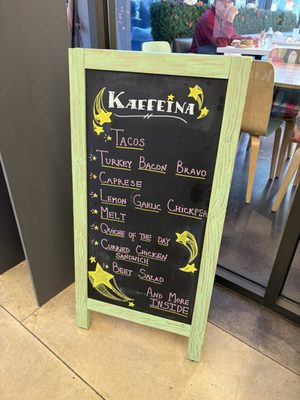 KAFFEINA
TACOS
TURKEY BACON BRAVO
CAPRESE
LEMON GARLIC CHICKPEA
MELT
QUICHE OF THE DAY
CURRIED CHICKEN
SANDWICH
BEET SALAD
AND MORE
INSIDE